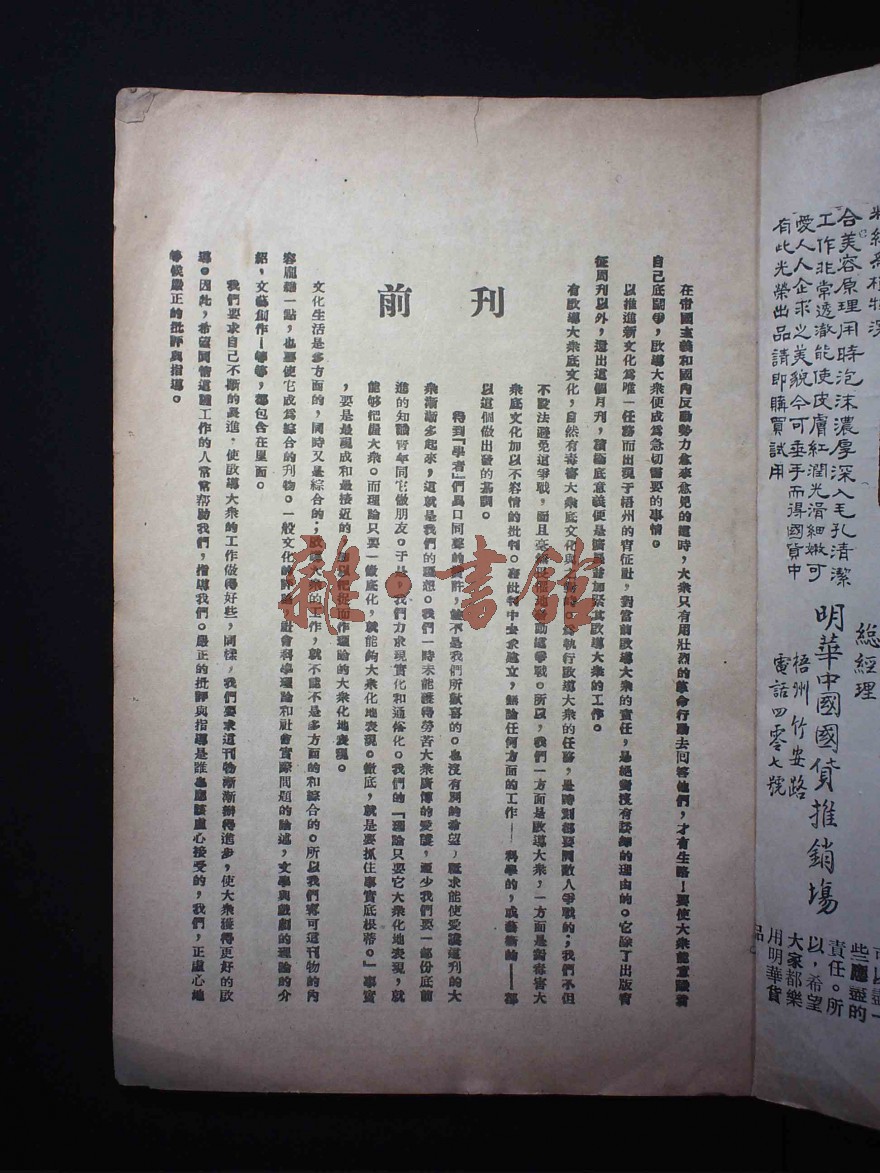 刊前
在帝國主義和國內反動勢力愈來愈兇的這時，大衆只有用壯烈的革命行動去回答他們，才有生路！要使大衆能意識着
自己底鬪爭，啟導大衆便成爲急切需要的事情。
以推進新文化爲唯一任務而出現于梧州的宵征社，對當前啟導大衆的責任，是絕對沒有諉卸的理由的。它除了出版宵
征周刊以外，還出這個月刊，積極底意義便是
加緊其啟導大衆的工作。
有啟導大衆底文化，自然有毒害大衆底文化與之
執行啟導大衆的任務，是時刻都要同敵人爭戰的；我們不但
不設法避免這爭戰，而且毫無
發動這爭戰。所以，我們一方面是啟導大衆，一方面是對毒害大
衆底文化加以不容情的批判。在批判中去求建立，無論任何方面的工作——科學的，或藝術的——都
以這個做出發的基調。
得到「學者」們異口同聲的讚許，並不是我們所歡喜的。也沒有別的希望，祇求能使愛護這刊的大
衆漸漸多起來，這就是我們的理想。我們一時未能獲得勞苦大衆廣傳的愛護，至少我們要一部份底前
進的知識青年同它做朋友。于是，我們力求現實化和通俗化。我們的「理論只要它大衆化地表現，就
能夠把握大衆。而理論只要一徹底化，就能夠大衆化地表現。徹底，就是要抓住事實底根蒂。」事實
，要是最現成和最接近的，
以把捉而作理論的大衆化地表現。
文化生活是多方面的，同時又是綜合的；啟導大衆的工作，就不能不是多方面的和綜合的。所以我們寧可這刊物的內
容龐雜一點，也要使它成爲綜合的刊物。一般文化的評論，社會科學理論和社會實際問題的論述，文學與戲劇的理論的介
紹，文藝創作——等等，都包含在里面。
我們要求自己不斷的長進，使啟導大衆的工作做得好些，同樣，我們要求這刊物漸漸辦得進步，使大衆獲得更好的啟
導。因此，希望同情這種工作的人常常帮助我們，指導我們。嚴正的批評與指導是誰也應該虛心接受的，我們，正虛心地
等候嚴正的批評與指導。
合美容原理用時泡沫濃厚深入毛孔清潔
工作非常透澈能使皮膚紅潤光滑細嫩可
愛人人企求之美貌今可垂手而得國貨中
有此光榮出品請即購買試用
總經理
明華中國國貨推銷場
梧州竹安路
電話四零七號
可以盡一
些應盡的
責任。所
以，希望
大家都樂
用明華貨
品
雜·書館